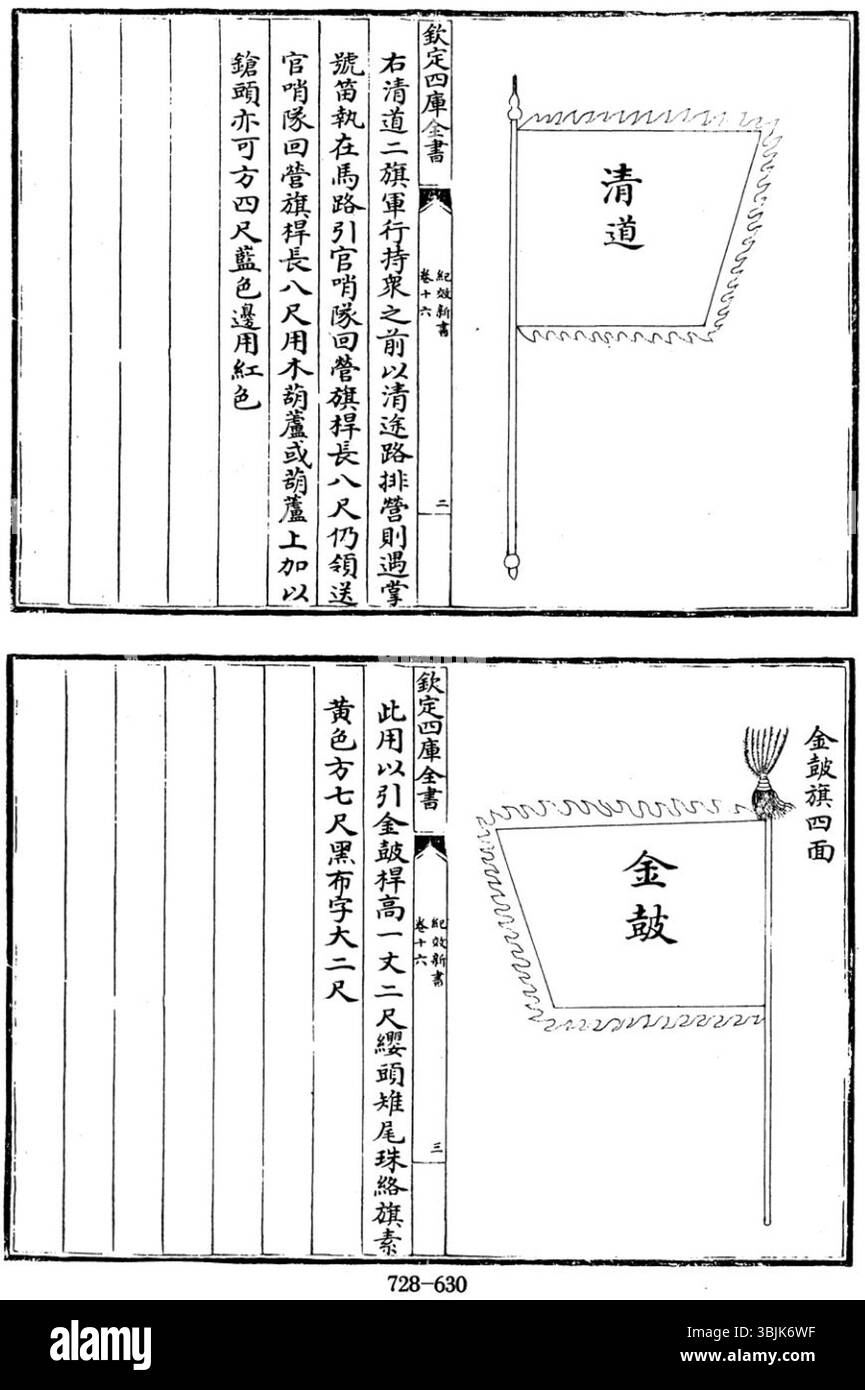 清道
欽定四庫全書
紀效新書
卷十六
二
右清道二旗軍行持衆之前以清途路排營則遇掌
號笛執在馬路引官哨隊回營旗桿長八尺仍領送
官哨隊回營旗桿長八尺用木葫蘆或葫蘆上加以
鎗頭亦可方四尺藍色邊用紅色
金鼓旗四面
金鼓
欽定四庫全書
紀效新書
卷十六
三
此用以引金鼓桿高一丈二尺纓頭雉尾珠絡旗素
黃色方七尺黑布字大二尺
728-630
alamy
Image ID: 3BJK6WF
www.alamy.com